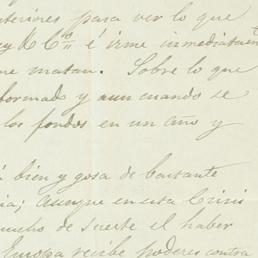 nteriores para ver lo que
ey & Co é irme inmediatam
me matan. Sobre lo que
formado y aun cuando se
los fondos en un año y
bien y gosa de bastante
ia; aunque en esta Crisis
mucho de suerte el haber
Europa recibe poderes contra